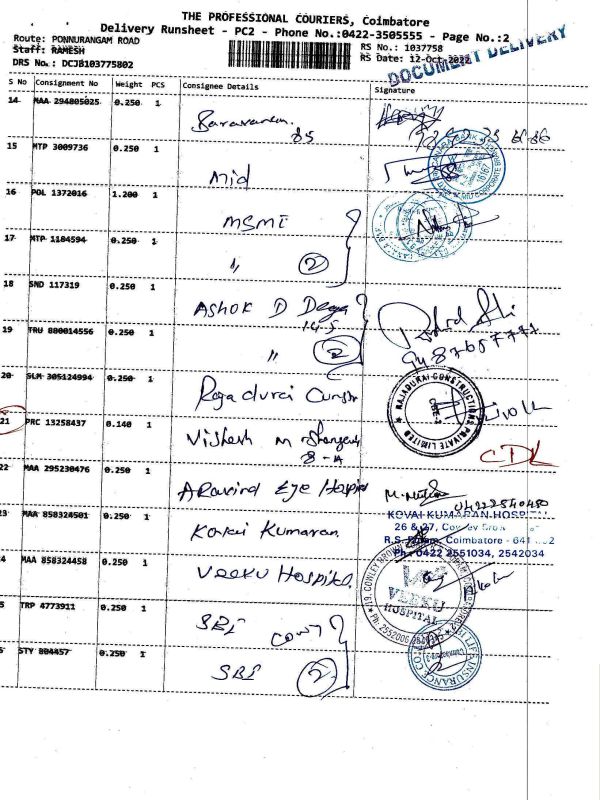 THE PROFESSIONAL COURIERS, Coimbatore
Delivery Runsheet - PC2 - Phone No.:0422-3505555 - Page No.:2
Route: PONNURANGAM ROAD
Staff: RAMESH
DRS No.: DCJB103775802
RS No.: 1037758
RS Date: 12-Oct-2022
DOCUMENT DELIVERY
S No Consignment No Weight PCS Consignee Details Signature
14 MAA 294805025 0.250 1 Saravanan.
85
15 MTP 3009736 0.250 1 Mid
16 POL 1372016 1.200 1 MSME
17 MTP 1184594 0.250 1 〃 2
18 SND 117319 0.250 1 Ashok D
14-5
19 TRU 880014556 0.250 1 〃 2
20 SLM 305124994 0.250 1 Rajadurai Constr
RAJADURAI CONSTRUCTIONS PRIVATE LIMITED
CBE-2
21 PRC 13258437 0.140 1 Vishesh M
8-A
CDL
22 MAA 295230476 0.250 1 Aravind Eye Hospital
23 MAA 858324501 0.250 1 Kovai Kumaran
KOVAI KUMARAN HOSPITAL
26 & 27,
R.S. Puram, Coimbatore - 641
Ph: 0422 2551034, 2542034
24 MAA 858324458 0.250 1 Veeku Hospital
VEEKU
HOSPITAL
25 TRP 4773911 0.250 1 SBI
26 STY 804457 0.250 1 SBI 2
LIFE INSURANCE CO